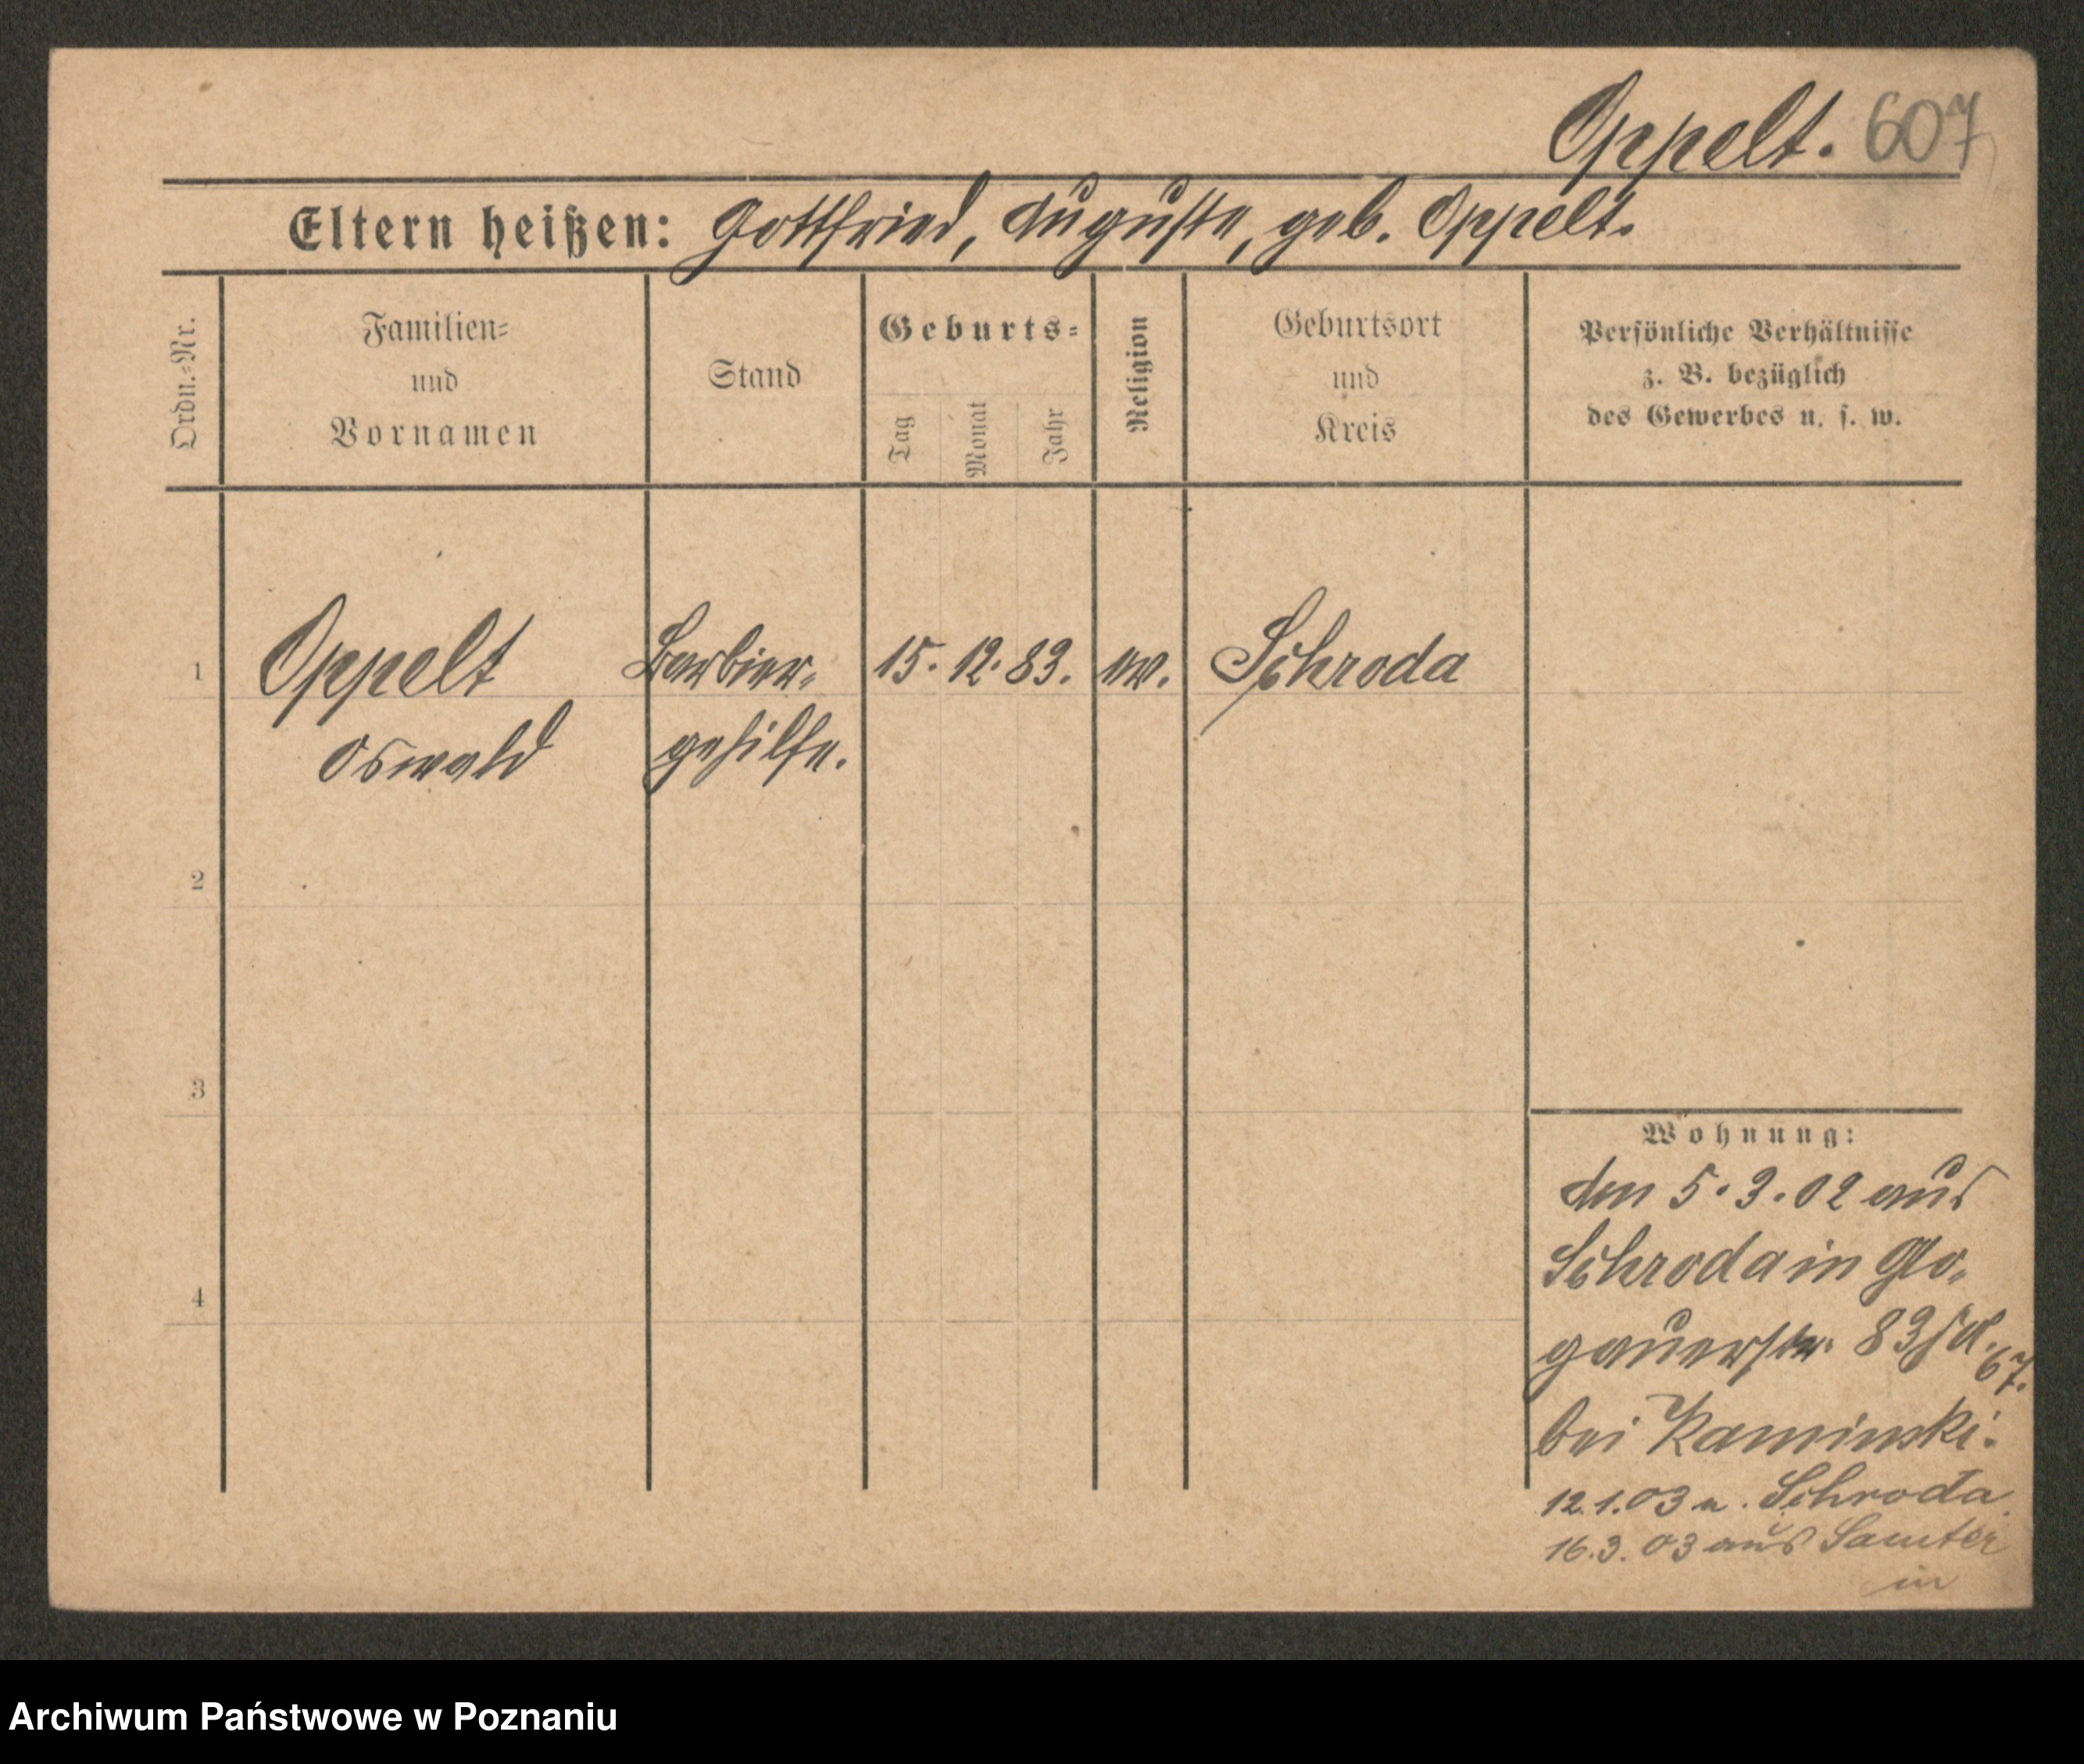 Oppelt. 607
Eltern heißen: Gottfried, Auguste, geb. Oppelt.
Ordn.=Nr.
Familien=
und
Vornamen
Stand
Geburts=
Tag
Monat
Jahr
Religion
Geburtsort
und
Kreis
Persönliche Verhältnisse
z. B. bezüglich
des Gewerbes u. s. w.
1 Oppelt Barbier- 15. 12. 83. ev. Schroda
Oswald gehilfe.
2
3
4
Wohnung:
den 5.3.02 aus
Schroda in Glo-
gauerstr. 83
67.
bei Kaminski.
12.1.03 a. Schroda
16.3.03 aus Samter
in
Archiwum Państwowe w Poznaniu